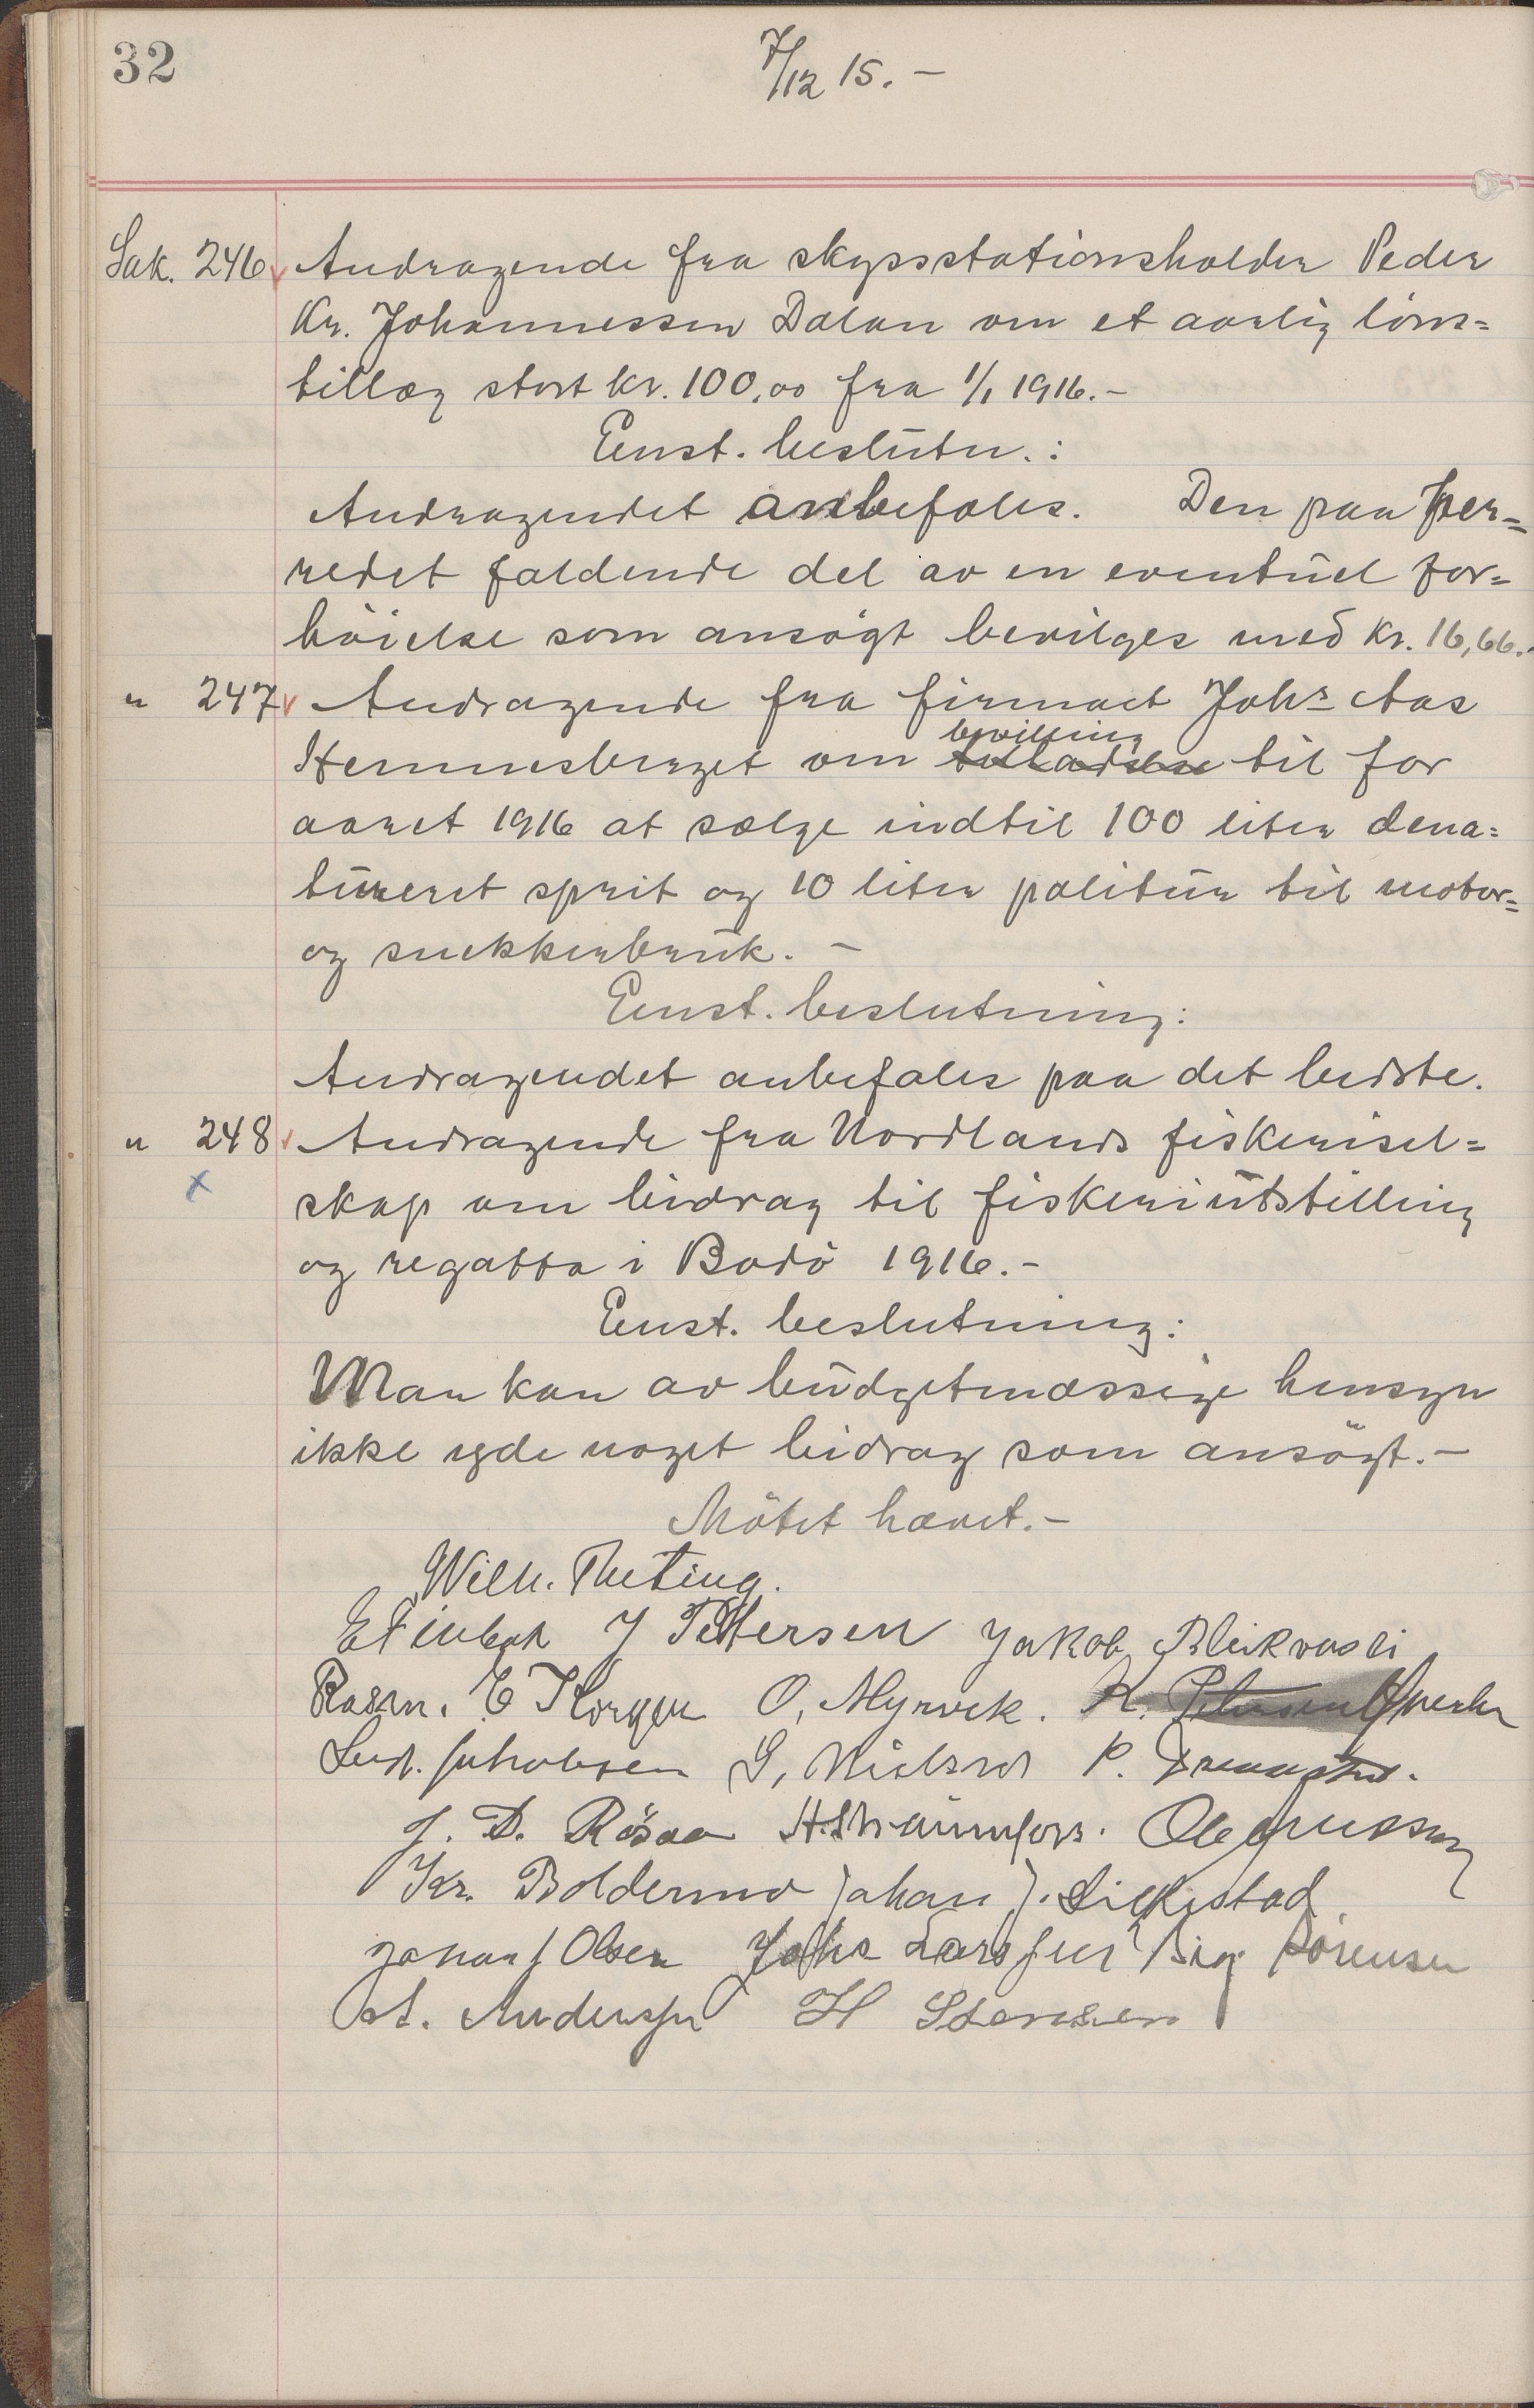 32
7/12 15. –
Sak. 246 Andragende fra skysstationsholder Peder
Kr. Johannessen Dalan om et aarlig löns=
tillæg stort kr. 100,00 fra 1/1 1916.–
Enst. beslutn.:
Andragendet anbefales. Den paa her=
redet faldende del av en eventuel for=
höielse som ansögt bevilges med kr. 16,66.–
" 247 Andragende fra firmaet Johs Aas
bevilling
Hemnesberget om tilladelse til for
aaret 1916 at sælge indtil 100 liter dena=
tureret sprit og 10 liter politur til motor=
og snekkerbruk. –
Enst. beslutning:
Andragendet anbefales paa det bedste.
" 248 Andragende fra Nordlands fiskerisel=
x
skap om bidrag til fiskeriutstilling
og regatta i Bodö 1916.–
Enst. beslutning:
Man kan av budgetmæssige hensyn
ikke yde noget bidrag som ansögt.–
Mötet hævet.–
Wilh. Theting.
J Pettersen Jakob Bleikvasli
Rasm. E Korgen O. Myrvik. K. Petersen
Lud. Jakobsen S. Nielsen P.
J. D. Rösaa
Kr. Boldermo Johan J. Silkestad
Johan J Olsen Johs Larssen Sig. Sörensen
A. Anderssen H Stensen